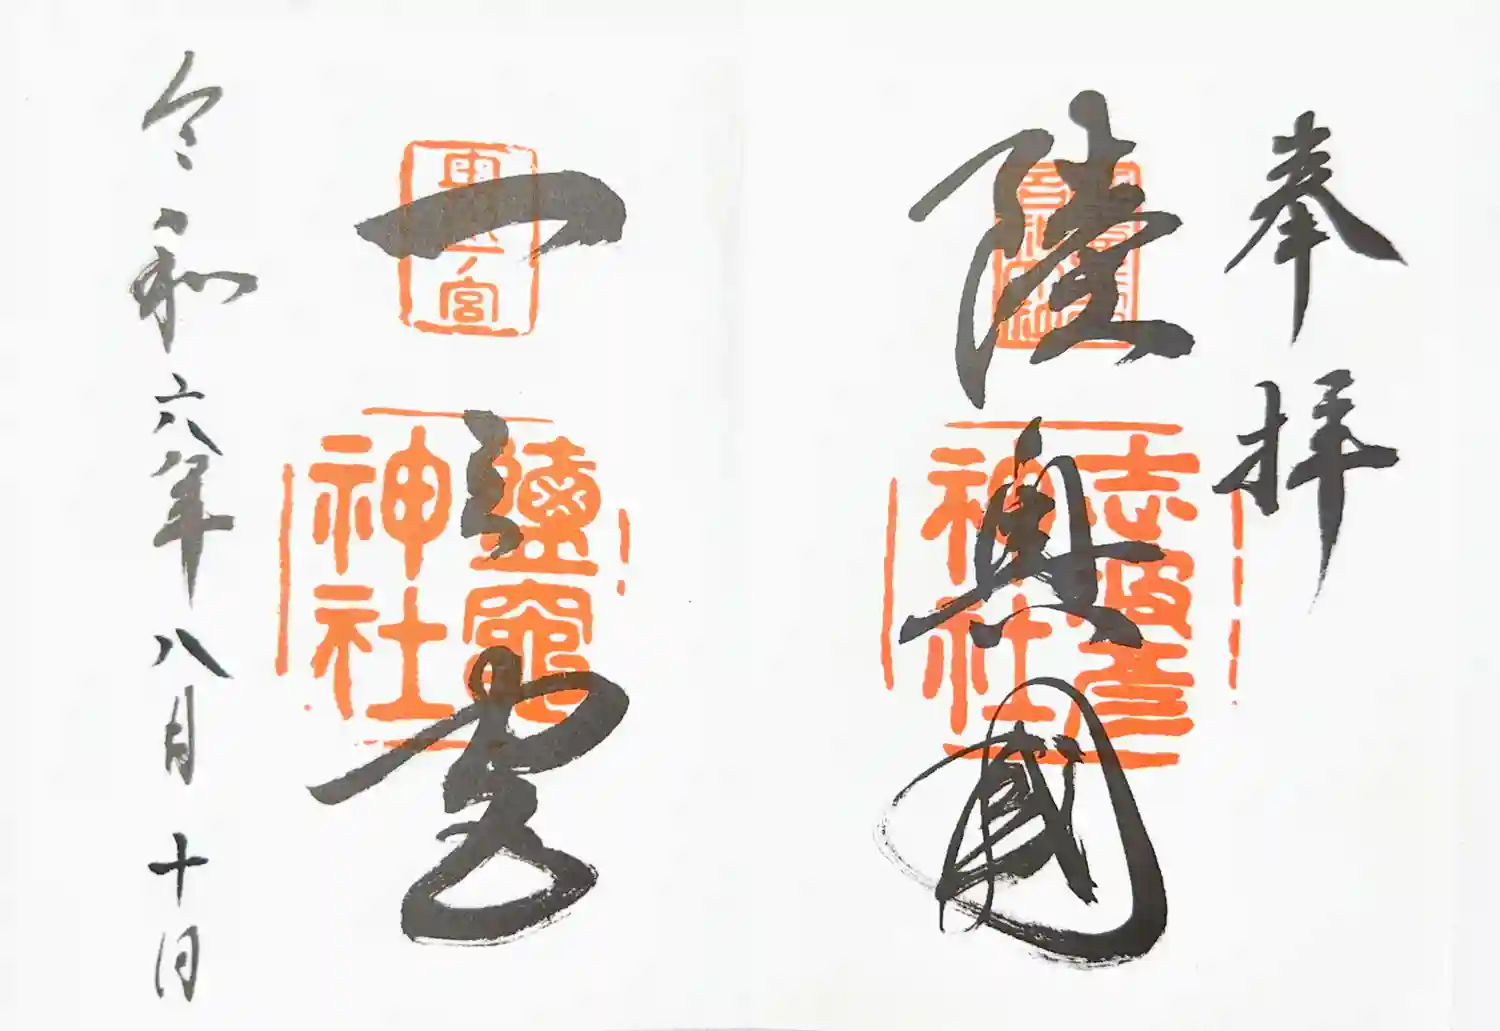 奉拝
陸奥國
志波彦
神社
一之宮
東奥一ノ宮
鹽竈
神社
令和六年八月十日